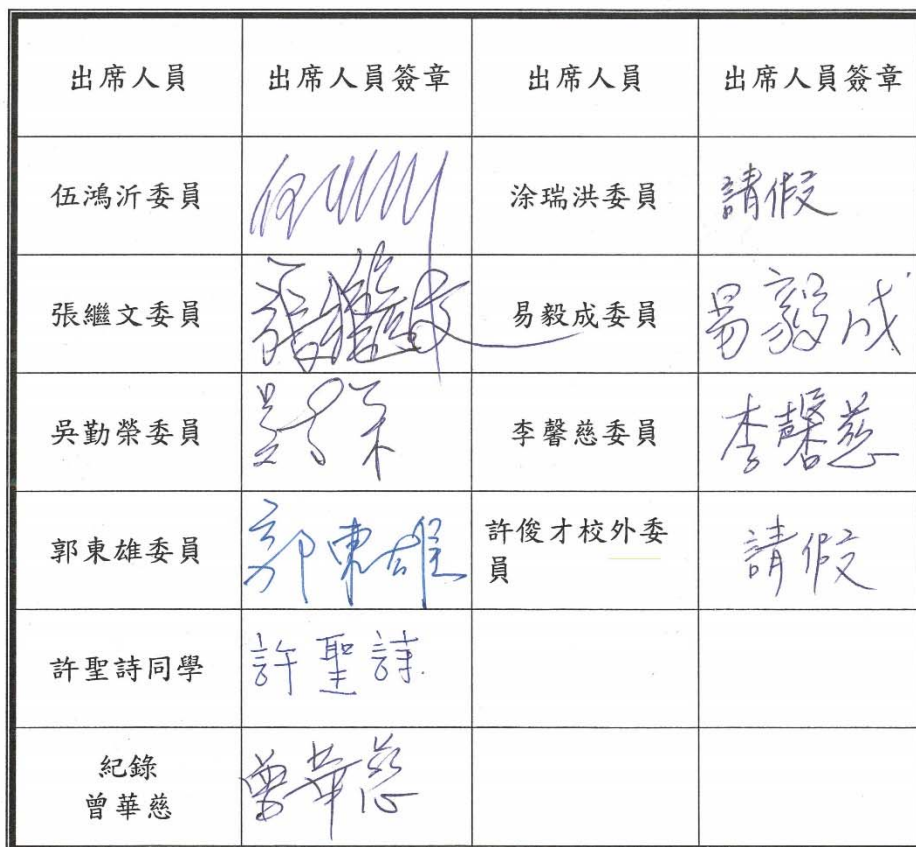 出席人員 出席人員簽章 出席人員 出席人員簽章
伍鴻沂委員 涂瑞洪委員 請假
張繼文委員 張繼文 易毅成委員 易毅成
吳勤榮委員 李馨慈委員 李馨慈
郭東雄委員 郭東雄 許俊才校外委
員 請假
許聖詩同學 許聖詩
紀錄
曾華慈 曾華慈